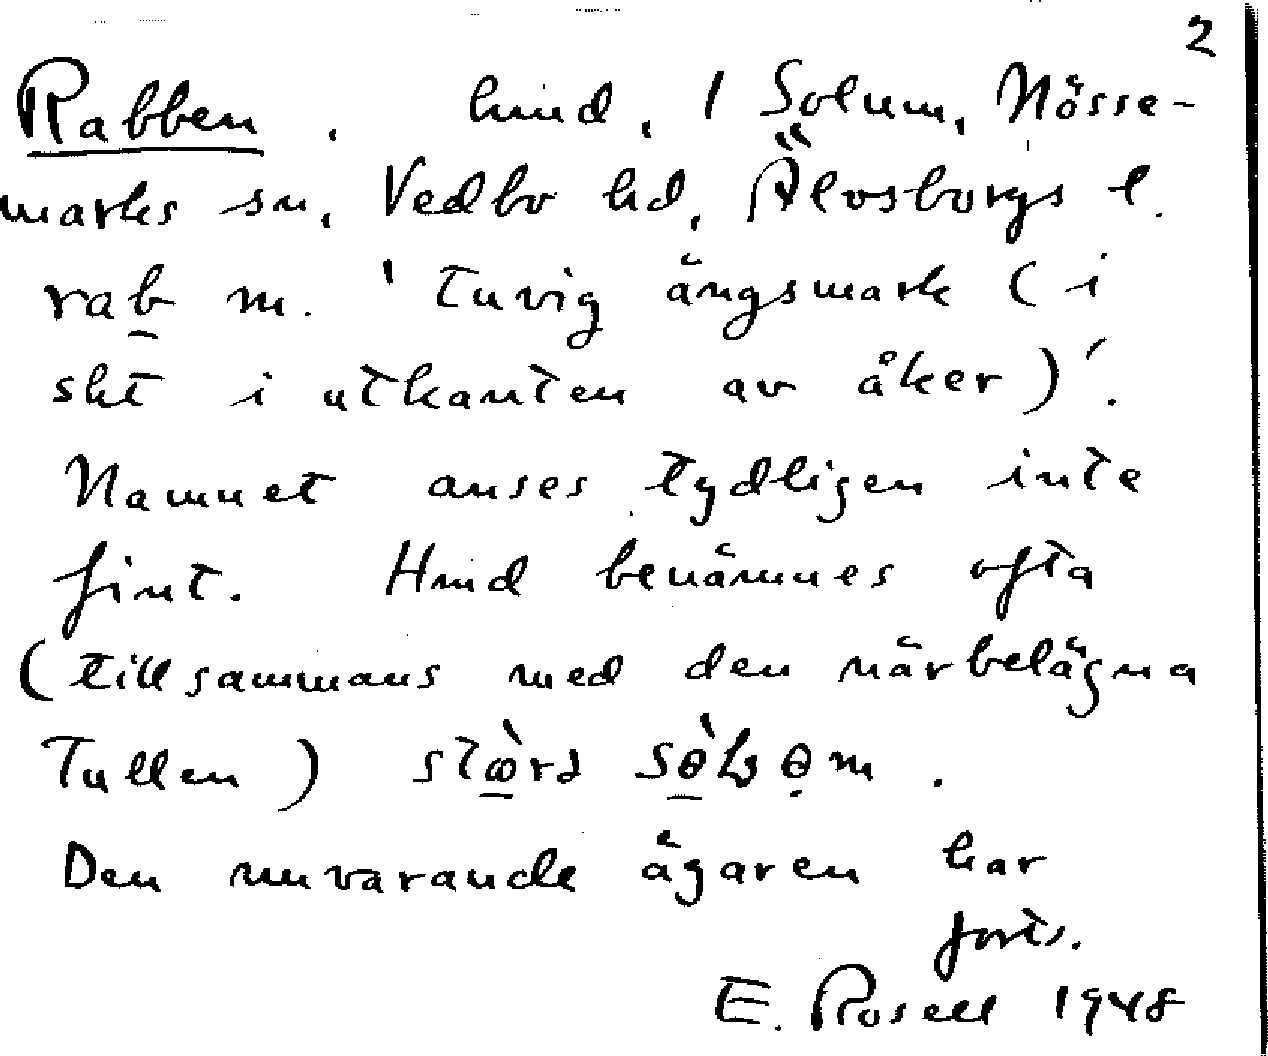 2
Rabben. hmd, 1 Solum, Nösse-
marks sn, Vedbo hd, Älvsborgs l.
rab m. 'tuvig ängsmark (i
sht i utkanten av åker)'.
Namnet anses tydligen inte
fint. Hmd benämnes ofta
(tillsammans med den närbelägna
Tullen)
Den nuvarande ägaren har
forts.
E. Rosell 1948